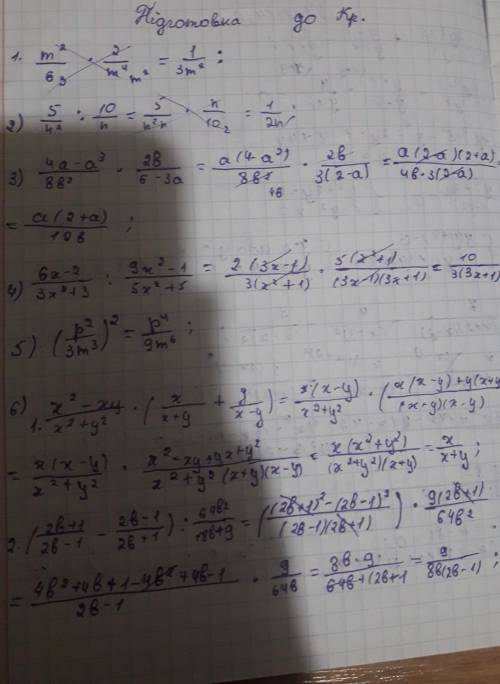 Підготовка до Кр.
1. m²/6 · 2/m⁴ = 1/3m² ;
2) 5/n² : 10/n = 5/n² · n/10 = 1/2n ;
3) 4a-a³/8b² · 2b/6-3a = a(4-a²)/8b² · 2b/3(2-a) = a(2-a)(2+a)/4b·3(2-a) =
= a(2+a)/12b ;
4) 6x-2/3x²+3 : 9x²-1/5x²+5 = 2(3x-1)/3(x²+1) · 5(x²+1)/(3x-1)(3x+1) = 10/3(3x+1)
5) (p²/3m³)² = p⁴/9m⁶ ;
6) 1. x²-xy/x²+y² · (x/x+y + y/x-y) = x(x-y)/x²+y² · (x(x-y)+y(x+y)/(x-y)(x-y)
= x(x-y)/x²+y² · x²-xy+yx+y²/x²+y²(x+y)(x-y) = x(x²+y²)/(x²+y²)(x+y) = x/x+y ;
2. (2b+1/2b-1 - 2b-1/2b+1) : 64b²/18b+9 = ((2b+1)²-(2b-1)²/(2b-1)(2b+1)) · 9(2b+1)/64b²
= 4b²+4b+1-4b²+4b-1/2b-1 · 9/64b = 8b·9/64b+(2b+1 = 9/8b(2b-1) ;